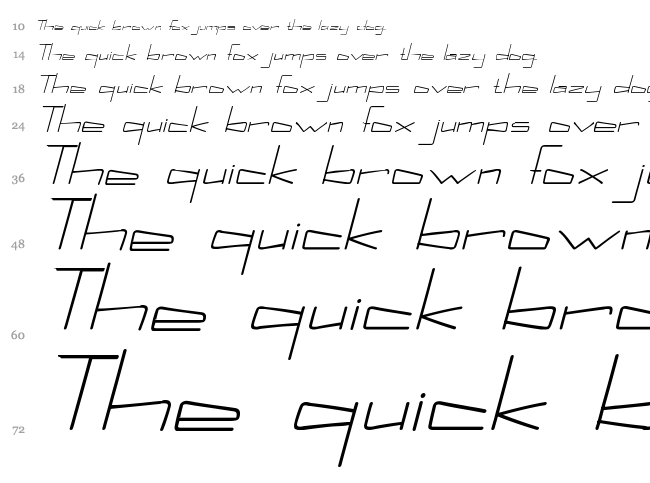 10 The quick brown fox jumps over the lazy dog.
14 The quick brown fox jumps over the lazy dog.
18 The quick brown fox jumps over the lazy dog
24 The quick brown fox jumps over
36 The quick brown fox ju
48 The quick brown
60 The quick bro
72 The quick b